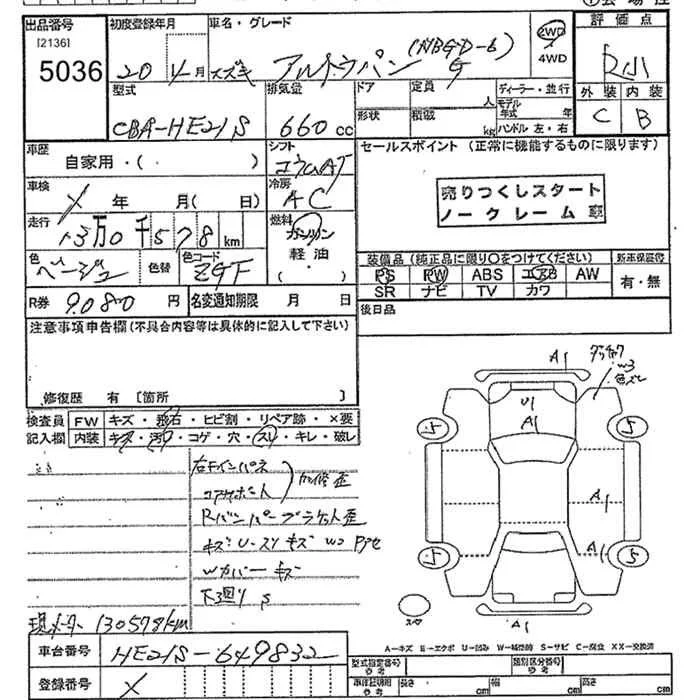 出品番号
[2136]
5036
初度登録年月
20年4月
車名・グレード
スズキ アルトラパン G
(NBGD-6)
2WD
4WD
評価点
R小
外装 内装
C B
型式
CBA-HE21S
排気量
660 cc
ドア
形状
定員 人
積載 kg
ディーラー・並行
モデル年式 年
ハンドル 左・右
車歴
自家用・( )
シフト
コラムAT
セールスポイント (正常に機能するものに限ります)
売りつくしスタート
ノークレーム
車検
X 年 月( 日)
冷房
AC
走行
13万0千578km
燃料
ガソリン
軽油
( ・ )
色
ベージュ
色替
色コード
ZGF
装備品 (純正品に限り○をつけてください)
PS PW ABS エアB AW
SR ナビ TV カワ
新車保証書
有・無
R券 9080円
名変通知期限 月 日
後日品
注意事項申告欄(不具合内容等は具体的に記入して下さい)
修復歴 有 [箇所 ]
検査員記入欄
FW キズ・飛石・ヒビ割・リペア跡・×要
内装 キズ・汚れ・コゲ・穴・スレ・キレ・破レ
右Fインパネ
コアサポート
修歪
Rバンパーブラケット歪
キズ U・スリキズ
Wカバーキズ
下廻り S
現メーター 130578km
A1
U1
A1
W3
色ズレ
5
5
A1
A1
5
5
A1
スペア
A-キズ E-エクボ U-凹み W-補修跡 S-サビ C-腐食 XX-交換済
車台番号
HE21S-649832
登録番号
X
型式指定番号
参考
類別区分番号
参考
車体証明用
参考
長さ cm
幅 cm
高さ cm